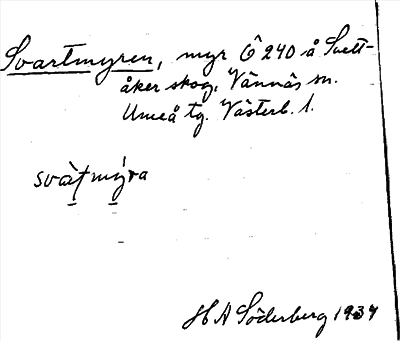 Svartmyren, myr Ö 240 å Svett-
åker skog, Vännäs sn.
Umeå tg. Västerb. l.
svàt̲mýra
H A Söderberg 1934